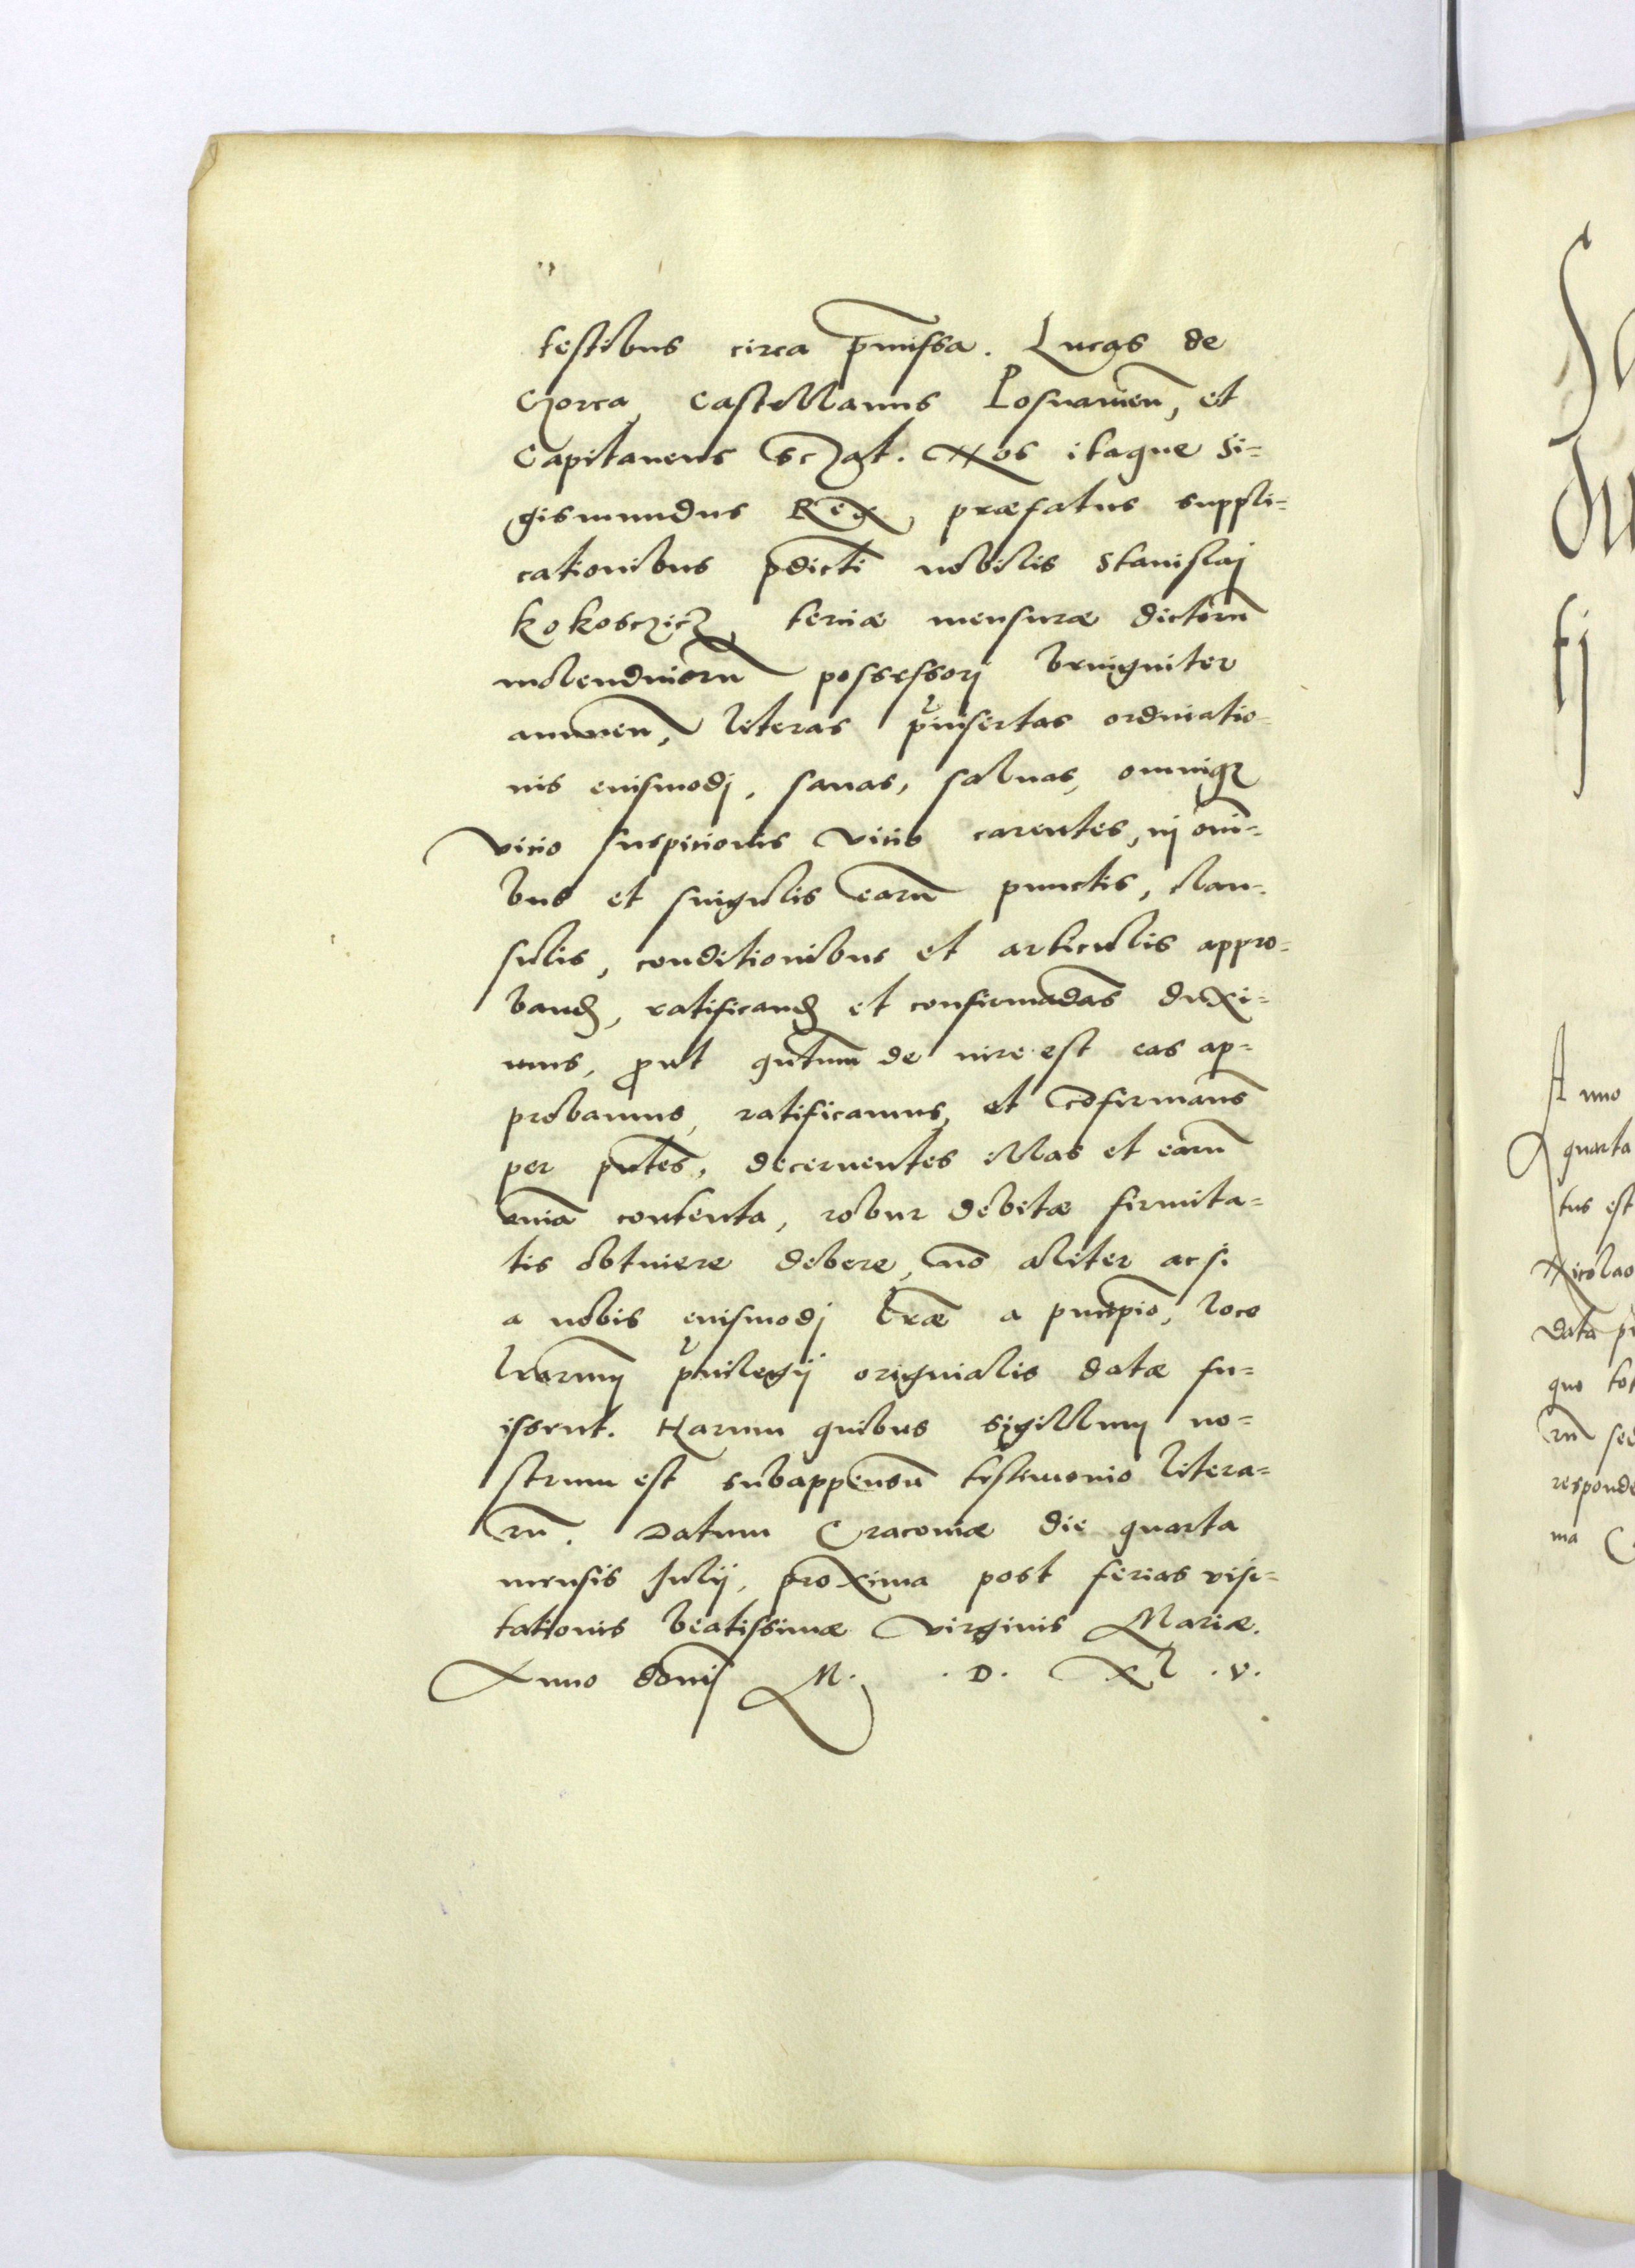 testibus circa p̄missa. Lucas de
Gorca, castellanus Posnanien̄, et
Capitaneus Nos itaque Si-
gismundus Rex, præfatus suppli-
cationibus p̄dicti nobilis Stanislaj
Kokosczicz, terciæ mensuræ dictorū
molendinorū possessorj benigniter
annuen̄, literas p̄insertas ordinatio-
nis eiusmodj, sanas, saluas, omniqꝫ
vicio suspicionis vicio carentes, in om̄i-
bus et singulis earū punctis, clau-
sulis, conditionibus et articulis appro-
band, ratificand et confirmādas duxi-
mus, prout qn̄tum de iure est eas ap-
probamus, ratificamus, et cōfirmam̄s
per pn̄tes, decernentes illas et earū
om̄ia contenta, robur debitæ firmita-
tis obtinere debere, nō aliter ac si
a nobis eiusmodj l̄ræ a principio, loco
l̄rarum priuilegij originalis datæ fu-
issent. Harum quibus sigillum no-
strum est subappensū testimonio litera-
rū. Datum Cracouiæ die quarta
mensis Julij, proxima post ferias visi-
tationis beatissimæ virginis Mariæ.
Anno domī M. .D. xl .v.
Anno
quarta
tus est
Nicolao
data
quo
rū
ma